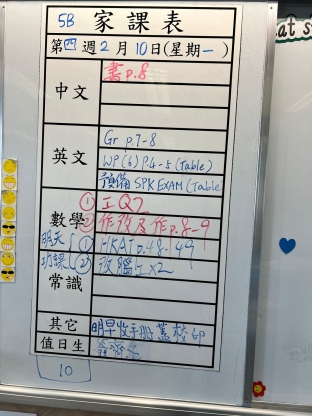 5B 家課表
第四週2月10日(星期一)
中文
書p.8
英文
Gr p.7-8
WP(6)p.4-5(Table)
預備SPK EXAM(Table
數學
①工Q7
②作改及作p.8-9
明天功課
①HKAT p.48-49
②改腦工x2
常識
其它
明早收手冊蓋校印
值日生
10
at s